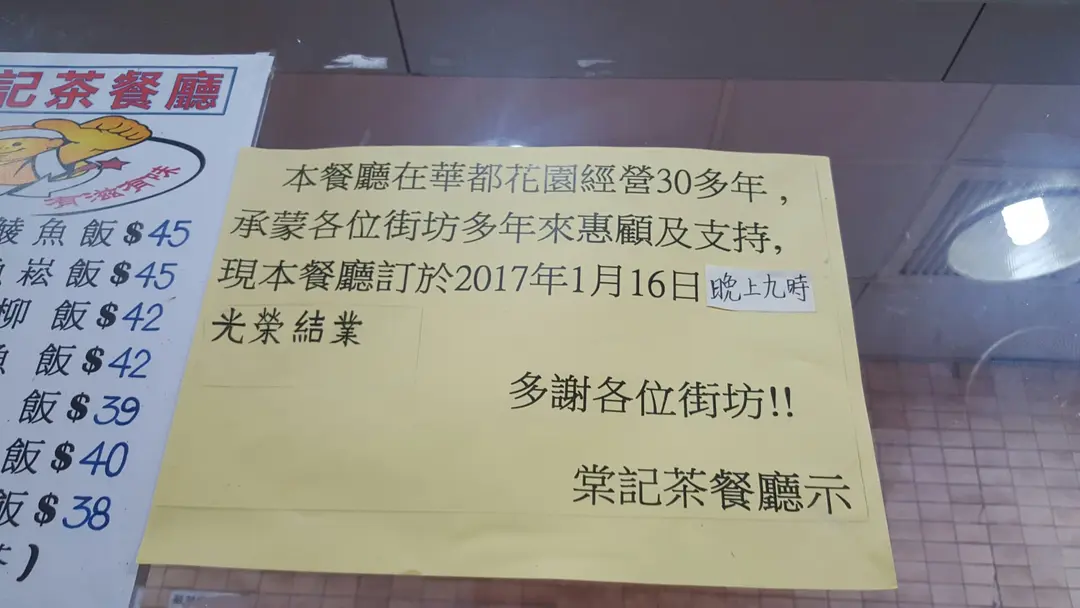 記茶餐廳
有滋有味
鯪魚飯$45
崧飯$45
柳飯$42
魚飯$42
飯$39
飯$40
飯$38
本餐廳在華都花園經營30多年，
承蒙各位街坊多年來惠顧及支持，
現本餐廳訂於2017年1月16日晚上九時
光榮結業
多謝各位街坊!!
棠記茶餐廳示